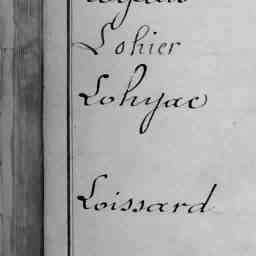 Lohier
Lohyac
Loissard